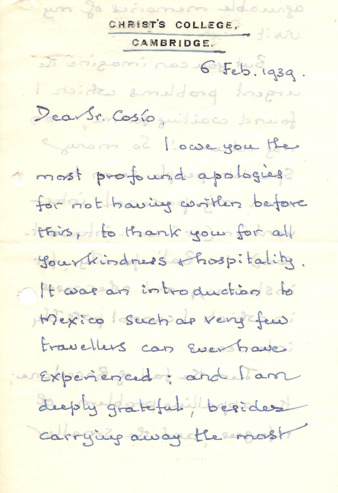 CHRIST'S COLLEGE,
CAMBRIDGE.
6 Feb. 1939.
Dear Sr. Cosío,
I owe you the
most profound apologies
for not having written before
this, to thank you for all
your kindness & hospitality.
It was an introduction to
Mexico such as very few
travellers can ever have
experienced; and I am
deeply grateful, besides
carrying away the most